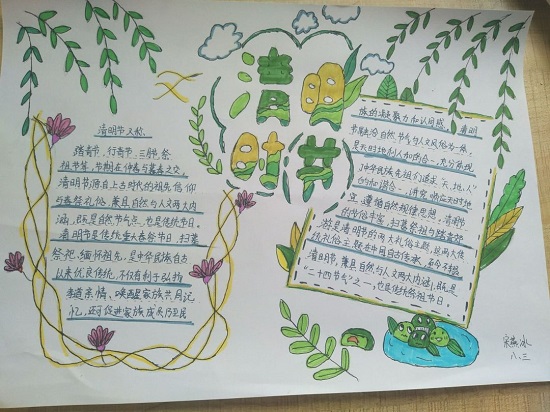 清明
时节
清明节又称
踏青节、行清节、三月节、祭
祖节等,节期在仲春与暮春之交。
清明节源自上古时代的祖先信仰
与春祭礼俗,兼具自然与人文两大内
涵,既是自然节气点,也是传统节日。
清明节是传统重大春祭节日,扫墓
祭祀、缅怀祖先,是中华民族自古
以来优良传统,不仅有利于弘扬
孝道亲情、唤醒家族共同记
忆,还可促进家族成员乃至民
族的凝聚力和认同感。清明
节融汇自然节气与人文风俗为一体,
是天时地利人和的合一,充分体现
了中华民族先祖们追求“天、地、人”
的和谐合一,讲究顺应天时地
宜、遵循自然规律思想。清明节
的习俗丰富,扫墓祭祖与踏青郊
游是清明节的两大礼俗主题,这两大传
统礼俗主题在中国自古传承,至今不辍。
清明节,兼具自然与人文两大内涵,既是
“二十四节气”之一,也是传统祭祖节日。
八.三